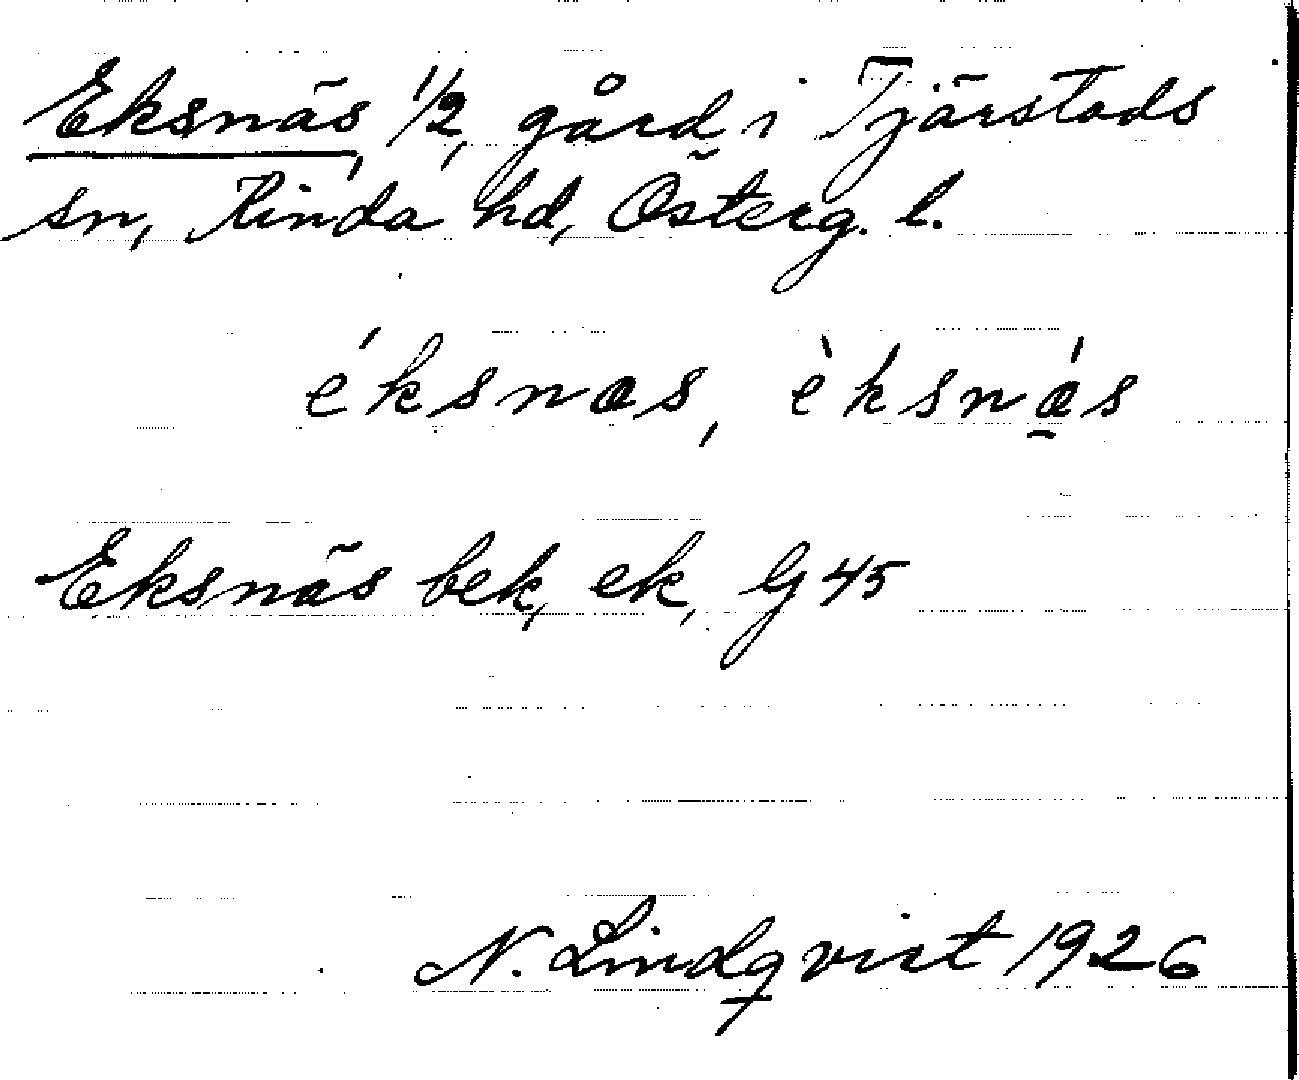 Eksnäs, 1/2, gård i Tjärstads
sn, Kinda hd, Österg. l.
éksnas, èksnás
Eksnäs bek, ek, G 45
N. Lindqvist 1926